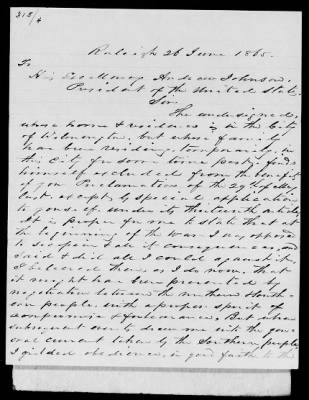 Raleigh 26 June 1865.
To
His Excellency Andrew Johnson,
President of the United States
Sir
The undersigned,
whose home & residence is in the City
of Wilmington, but whose family
has been residing, temporarily, in
this City for some time past, finds
himself excluded from the benefit
of your Proclamation of the 29th of May
last, except by special application
to yourself under the thirteenth article.
It is proper for me to state that at
the beginning of the war I was opposed
to secession & all its consequences, and
said & did all I could against it.
I believed then as I do now, that
it might have been prevented by
negotiation between the northern & south-
ern people, with a proper spirit of
compromise & forbearance. But when
subsequent events drew me into the gen-
eral current taken by the Southern people,
I yielded obedience, in good faith to the